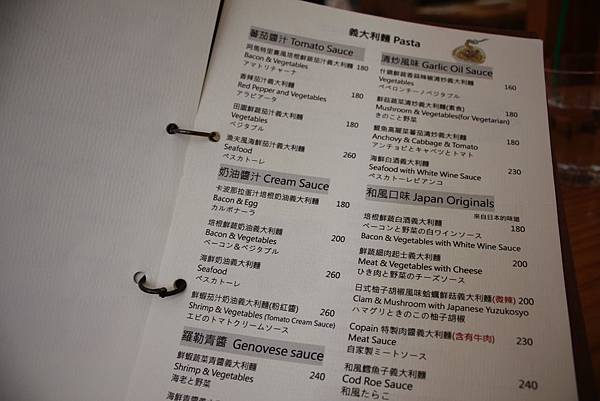 義大利麵 Pasta
蕃茄醬汁 Tomato Sauce
阿馬特里賈風培根鮮蔬茄汁義大利麵 180
Bacon & Vegetables
アマトリチャーナ
香辣茄汁義大利麵
Red Pepper and Vegetables 180
アラビアータ
田園鮮蔬茄汁義大利麵
Vegetables 180
ベジタブル
漁夫風海鮮茄汁義大利麵
Seafood 260
ペスカトーレ
奶油醬汁 Cream Sauce
卡波那拉蛋汁培根義大利麵 180
Bacon & Egg
カルボナーラ
培根鮮蔬奶油義大利麵
Bacon & Vegetables 200
ベーコン&ベジタブル
海鮮奶油義大利麵
Seafood 260
ペスカトーレ
鮮蝦茄汁奶油義大利麵(粉紅醬) 260
Shrimp & Vegetables (Tomato Cream Sauce)
エビのトマトクリームソース
羅勒青醬 Genovese sauce
鮮蝦蔬菜青醬義大利麵
Shrimp & Vegetables 240
海老と野菜
清炒風味 Garlic Oil Sauce
什錦鮮蔬香菇辣椒清炒義大利麵 160
Vegetables
ペペロンチーノベジタブル
鮮菇蔬菜清炒義大利麵(素食)
Mushroom & Vegetables(for Vegetarian) 180
きのこと野菜
鯷魚高麗菜蕃茄清炒義大利麵
Anchovy & Cabbage & Tomato 180
アンチョビとキャベツとトマト
海鮮白酒義大利麵
Seafood with White Wine Sauce 230
ペスカトーレビアンコ
和風口味 Japan Originals
來自日本的味道
培根鮮蔬白酒義大利麵 180
ベーコンと野菜の白ワインソース
Bacon & Vegetables with White Wine Sauce
鮮蔬細肉起士義大利麵 200
Meat & Vegetables with Cheese
ひき肉と野菜のチーズソース
日式柚子胡椒風味蛤蠣鮮菇義大利麵(微辣) 200
Clam & Mushroom with Japanese Yuzukosyo
ハマグリときのこの柚子胡椒
Copain 特製肉醬義大利麵(含有牛肉) 230
Meat Sauce
自家製ミートソース
和風鱈魚子義大利麵
Cod Roe Sauce 240
和風たらこ